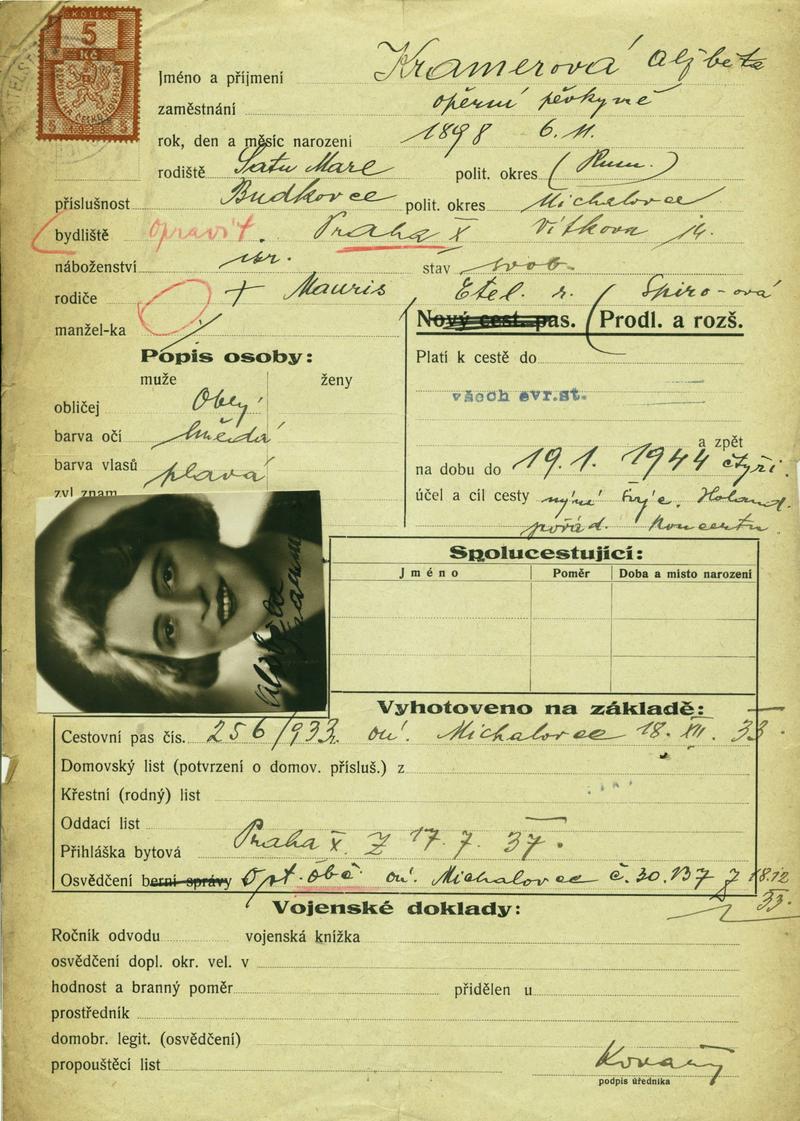 KOLEK
5
Kč
5 1938 5
Jméno a příjmení Kramerová Alžbeta
zaměstnání operní pěvkyně
rok, den a měsíc narozeni 1898 6. 11.
rodiště Satu Mare polit. okres (Rum.)
příslušnost Budkovce polit. okres Michalovce
bydliště opravit. Praha X Vítkova 14.
náboženství isr. stav svob.
rodiče + Mauris Etel. r. Spiro-ová
manžel-ka
Nový cest. pas. Prodl. a rozš.
Popis osoby:
muže ženy
Platí k cestě do
obličej Oblý
všech evr.st.
barva očí hnědá
a zpět
barva vlasů plavá
na dobu do 19. 1. 1944 čtyři.
zvl znam
účel a cíl cesty nyní Holand.
pořád. koncertu
Spolucestující:
Jméno Poměr Doba a misto narozeni
Vyhotoveno na základě:
Cestovní pas čís. 256/933. oú. Michalovce 18. XII. 33.
Domovský list (potvrzení o domov. přísluš.) z
Křestní (rodný) list
Oddací list
Přihláška bytová Praha X. Z 17. 7. 37.
Osvědčení berní správy Opt. obč. oú. Michalovce č. 30.137 z 18.12
33.
Vojenské doklady:
Ročník odvodu vojenská knížka
osvědčení dopl. okr. vel. v
hodnost a branný poměr přidělen u
prostředník
domobr. legit. (osvědčení)
propouštěcí list
podpis úředníka